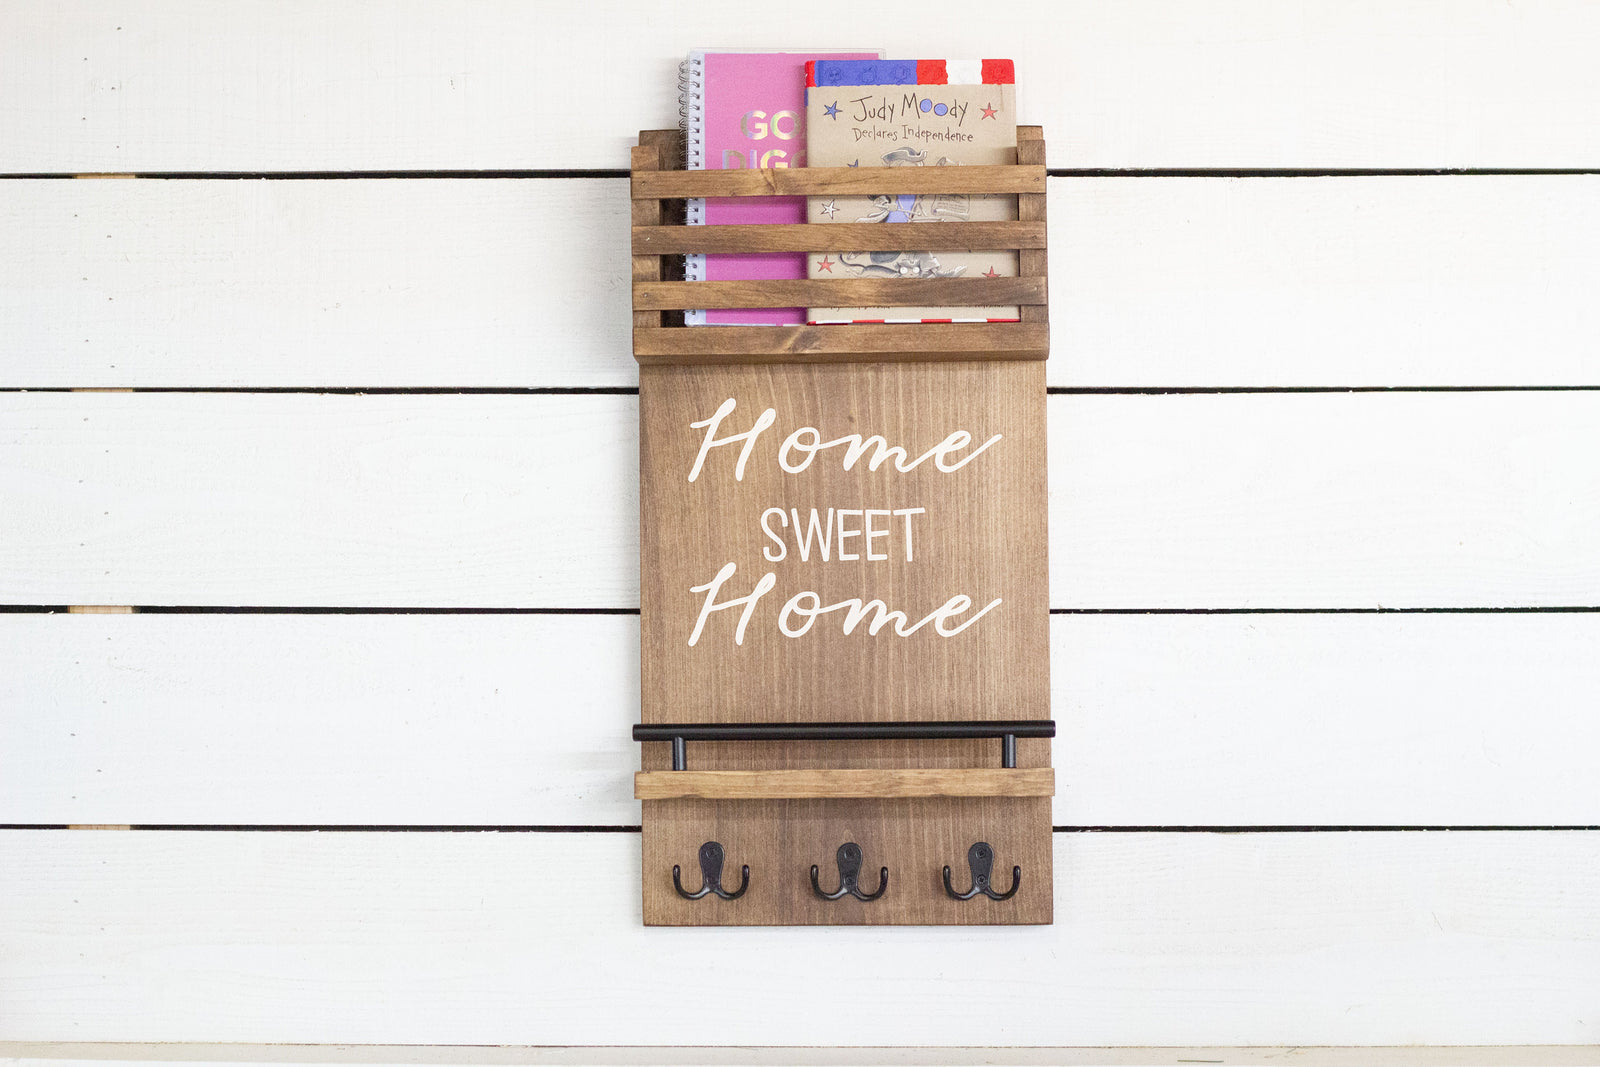 GO
DIG
Judy Moody
Declares Independence
Home
SWEET
Home